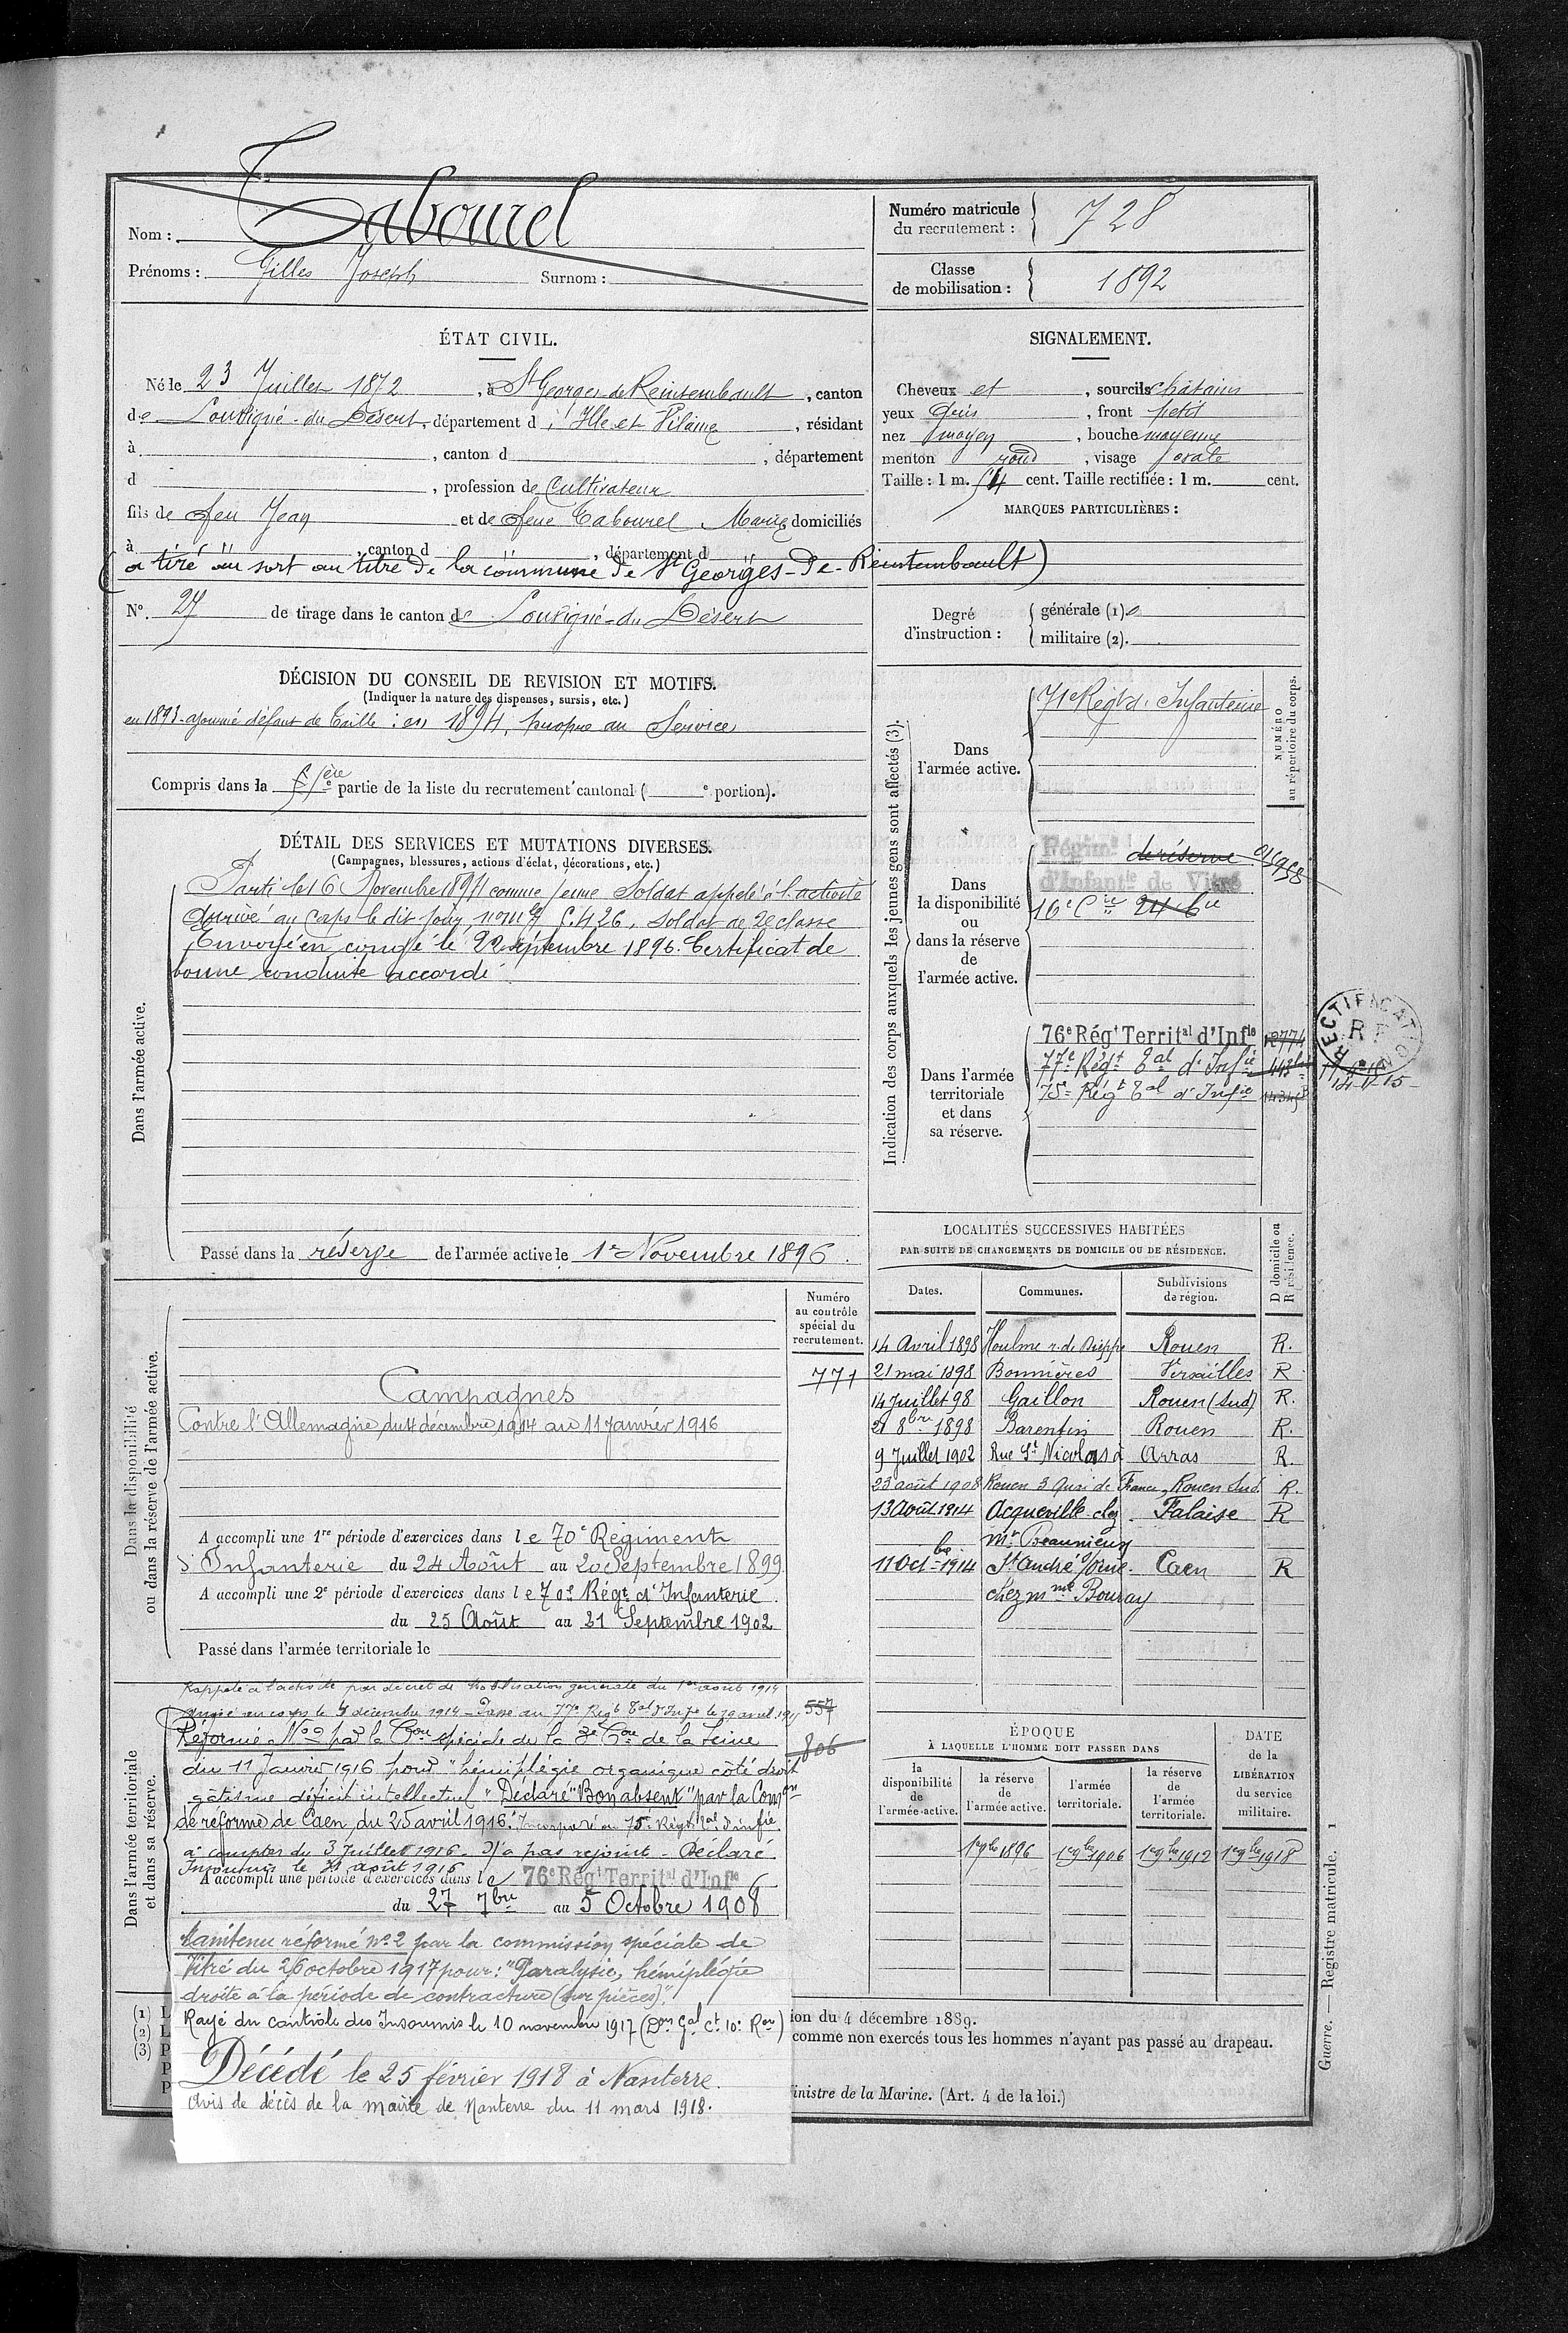 Nom : Tabourel
Prénoms : Gilles Joseph Surnom :
Numéro matricule du recrutement : 728
Classe de mobilisation : 1892
ÉTAT CIVIL.
Né le 23 Juillet 1872, à St Georges de Reintembault, canton
de Louvigné-du-Désert, département d'Ille et Vilaine, résidant
à , canton d , département
d , profession de Cultivateur
fils de feu Jean et de feue Tabourel Marie domiciliés
à , canton d , département d
(a tiré au sort au titre de la commune de St Georges-de-Reintembault)
N°. 27 de tirage dans le canton de Louvigné-du-Désert
SIGNALEMENT.
Cheveux et , sourcils châtains
yeux gris , front petit
nez moyen , bouche moyenne
menton rond , visage ovale
Taille : 1 m. 54 cent. Taille rectifiée : 1 m. cent.
MARQUES PARTICULIÈRES :
Degré d'instruction :
générale (1).
militaire (2).
DÉCISION DU CONSEIL DE REVISION ET MOTIFS.
(Indiquer la nature des dispenses, sursis, etc.)
en 1893 ajourné défaut de taille : en 1894, propre au Service
Compris dans la 1ère partie de la liste du recrutement cantonal ( e portion).
DÉTAIL DES SERVICES ET MUTATIONS DIVERSES.
(Campagnes, blessures, actions d'éclat, décorations, etc.)
Dans l'armée active.
Parti le 16 Novembre 1894 comme jeune Soldat appelé à l'activité
Arrivé au Corps le dit jour, n° mle 5.426, Soldat de 2e classe
Envoyé en congé le 22 septembre 1896. Certificat de
bonne conduite accordé
Passé dans la réserve de l'armée active le 1er Novembre 1896.
Indication des corps auxquels les jeunes gens sont affectés (3).
NUMÉRO au répertoire du corps.
Dans l'armée active.
71e Régt d'Infanterie
Dans la disponibilité ou dans la réserve de l'armée active.
Régimt de réserve
d'Infantie de Vitré
16e Cie 24 Cie
Dans l'armée territoriale et dans sa réserve.
76e Régt Territal d'Infie
77e Régt Tal d'Infie
75e Régt Tal d'Infie
RECTIFICATION
R F
LOCALITÉS SUCCESSIVES HABITÉES
PAR SUITE DE CHANGEMENTS DE DOMICILE OU DE RÉSIDENCE.
Dates. Communes. Subdivisions de région. D domicile ou R résidence.
14 Avril 1898 Houlme r. de Dieppe Rouen R.
21 mai 1898 Bonnières Versailles R
14 Juillet 98 Gaillon Rouen (Sud) R.
21 8bre 1898 Barentin Rouen R.
9 Juillet 1902 Rue St Nicolas à Arras R.
23 août 1908 Rouen 3 Quai de France, Rouen Sud. R.
13 Août 1914 Acqueville chez Falaise R
Mr Beaunieux
11 Octbre 1914 St André s/Orne Caen R
chez mme Bouray
Dans la disponibilité ou dans la réserve de l'armée active.
Numéro au contrôle spécial du recrutement.
771
Campagnes
Contre l'Allemagne du 4 décembre 1914 au 11 janvier 1916
A accompli une 1re période d'exercices dans le 70e Régiment
d'Infanterie du 24 Août au 20 Septembre 1899
A accompli une 2e période d'exercices dans le 70e Régt d'Infanterie
du 25 Août au 21 Septembre 1902
Passé dans l'armée territoriale le
Dans l'armée territoriale et dans sa réserve.
Rappelé à l'activité par décret de mobilisation générale du 1er août 1914
Arrivé au corps le 4 décembre 1914 - Passé au 77e Régt Tal d'Infie le 19 avril 1915
557
806
Réformé No 2 par la Con spéciale de la 3e Con de la Seine
du 11 Janvier 1916 pour "hémiplégie organique côté droit
gâtisme déficit intellectuel" Déclaré "Bon absent" par la Comon
de réforme de Caen, du 25 avril 1916. Incorporé au 75e Régt Tal d'infie
à compter du 3 juillet 1916 - N'a pas rejoint - Déclaré
Insoumis le 21 août 1916
A accompli une période d'exercices dans le 76e Régt Territal d'Infie
du 27 7bre au 5 Octobre 1908
Maintenu réformé n° 2 par la commission spéciale de
Vitré du 26 octobre 1917 pour : "Paralysie, hémiplégie
droite à la période de contracture (sur pièces)".
Rayé du contrôle des Insoumis le 10 novembre 1917 (Don Gal Ct 10e Ron)
Décédé le 25 février 1918 à Nanterre.
Avis de décès de la mairie de Nanterre du 11 mars 1918.
ÉPOQUE
À LAQUELLE L'HOMME DOIT PASSER DANS
la disponibilité de l'armée active. la réserve de l'armée active. l'armée territoriale. la réserve de l'armée territoriale.
DATE de la LIBÉRATION du service militaire.
1er 9bre 1896 1er 9bre 1906 1er 9bre 1912 1er 9bre 1918
(1) L
(2) L
(3) P
P
P
ion du 4 décembre 1889.
comme non exercés tous les hommes n'ayant pas passé au drapeau.
inistre de la Marine. (Art. 4 de la loi.)
Guerre. — Registre matricule. 1